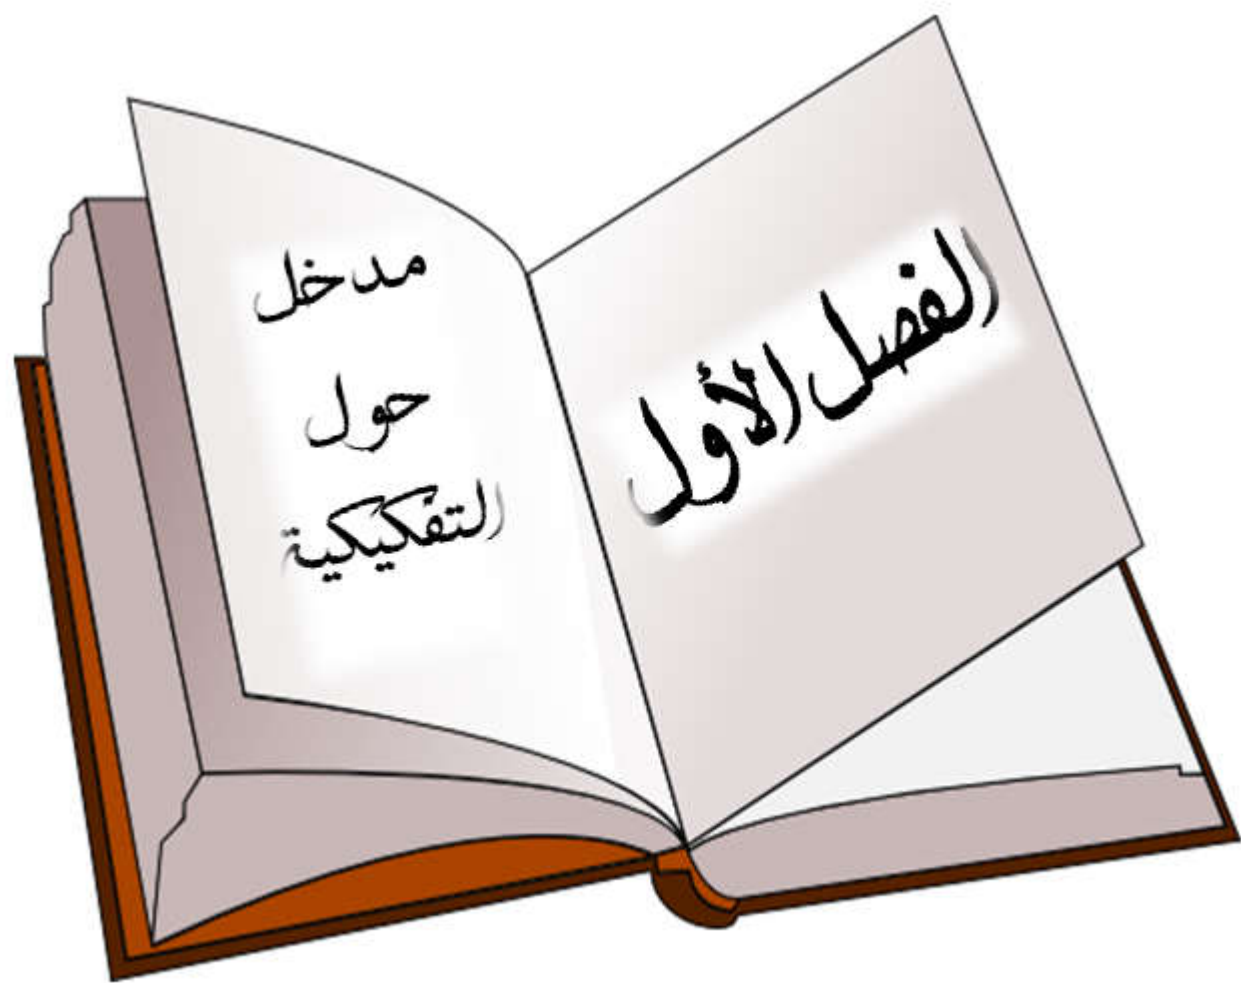 الفصل الأول
مدخل
حول
التفكيكية